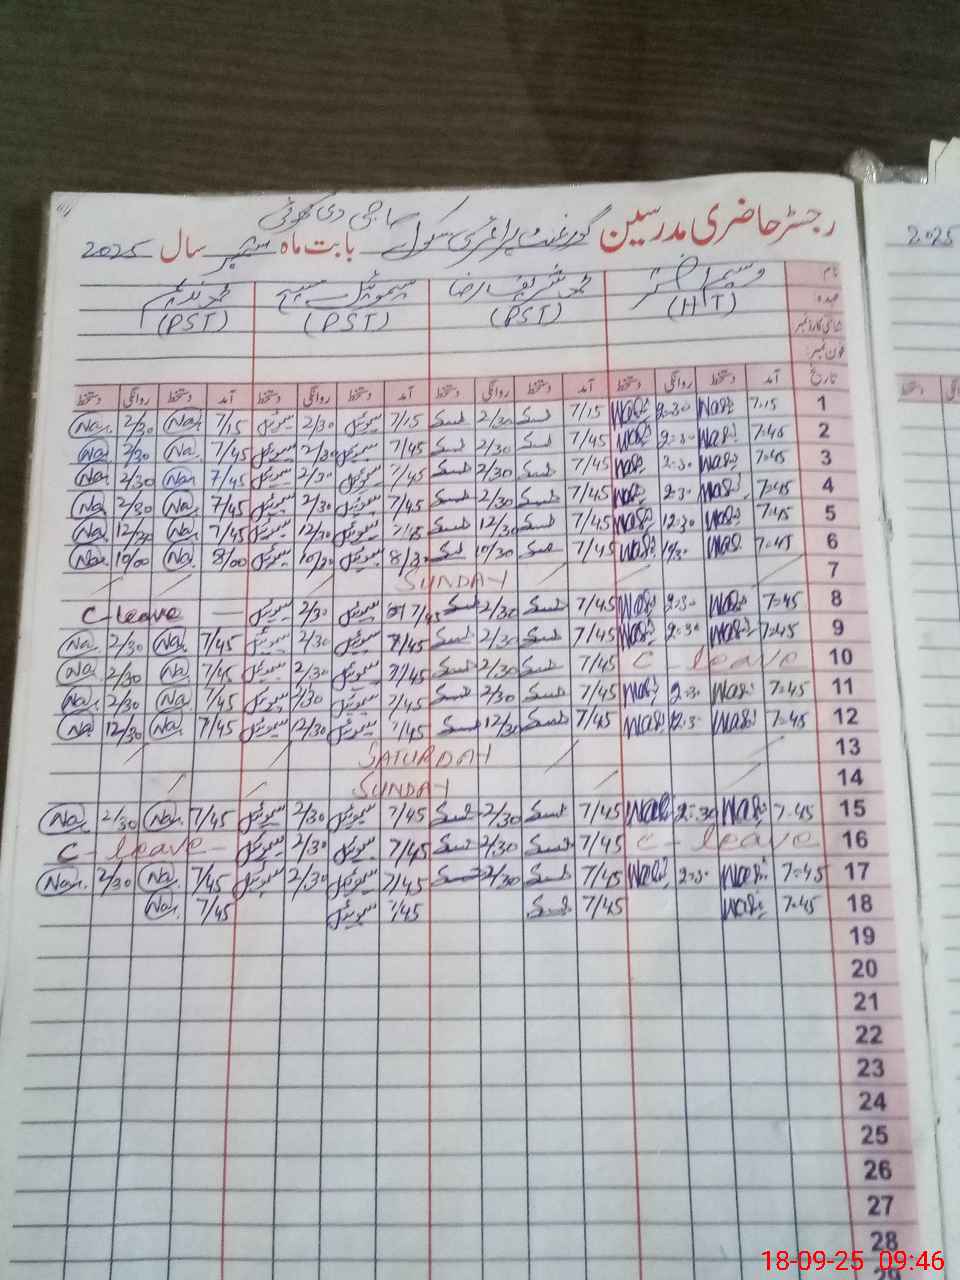 رجسٹر حاضری مدرسین گورنمنٹ پرائمری سکول ماجھی دی کوٹی بابت ماہ ستمبر سال 2025
2025
نام وسیم اختر محمد شریف رضا سیموئیل مسیح محمد ندیم
عہدہ (HT) (PST) (PST) (PST)
شناختی کارڈ نمبر
فون نمبر
تاریخ آمد دستخط روانگی دستخط آمد دستخط روانگی دستخط آمد دستخط روانگی دستخط آمد دستخط روانگی دستخط
1 7.15 Wasi 2.30 Wasi 7/15 2/30 7/15 سیموئیل 2/30 سیموئیل 7/15 Na 2/30 Na
2 7.45 Wasi 2.30 Wasi 7/45 2/30 7/45 سیموئیل 2/30 سیموئیل 7/45 Na 2/30 Na
3 7.45 Wasi 2.30 Wasi 7/45 2/30 7/45 سیموئیل 2/30 سیموئیل 7/45 Na 2/30 Na
4 7.45 Wasi 2.30 Wasi 7/45 2/30 7/45 سیموئیل 2/30 سیموئیل 7/45 Na 2/30 Na
5 7.45 Wasi 12.30 Wasi 7/45 12/30 سیموئیل 12/30 سیموئیل 7/45 Na 12/30 Na
6 7.45 Wasi Wasi 7/45 10/30 سیموئیل سیموئیل 8/00 Na 10/00 Na
7 SUNDAY
8 7.45 Wasi 2.30 Wasi 7/45 2/30 7/45 سیموئیل 2/30 سیموئیل — C-leave
9 7.45 Wasi 2.30 Wasi 7/45 2/30 7/45 سیموئیل 2/30 سیموئیل 7/45 Na 2/30 Na
10 C - leave 7/45 2/30 7/45 سیموئیل 2/30 سیموئیل 7/45 Na 2/30 Na
11 7.45 Wasi 2.30 Wasi 7/45 2/30 7/45 سیموئیل 2/30 سیموئیل 7/45 Na 2/30 Na
12 7.45 Wasi 12.30 Wasi 7/45 12/30 سیموئیل 12/30 سیموئیل 7/45 Na 12/30 Na
13 SATURDAY
14 SUNDAY
15 7.45 Wasi 2.30 Wasi 7/45 2/30 7/45 سیموئیل 2/30 سیموئیل 7/45 Na 2/30 Na
16 C - leave 7/45 2/30 7/45 سیموئیل 2/30 سیموئیل C - leave -
17 7.45 Wasi 2.30 Wasi 7/45 2/30 7/45 سیموئیل 2/30 سیموئیل 7/45 Na 2/30 Na
18 7.45 Wasi 7/45 سیموئیل 7/45 Na
19
20
21
22
23
24
25
26
27
28
29
18-09-25 09:46